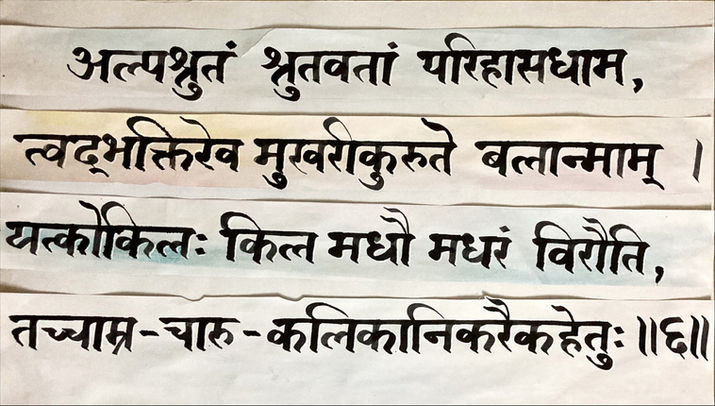 अल्पश्रुतं श्रुतवतां परिहासधाम,
त्वद्भक्तिरेव मुखरीकुरुते बलान्माम् ।
यत्कोकिलः किल मधौ मधरं विरौति,
तच्चाम्र-चारु-कलिकानिकरैकहेतुः ॥६॥